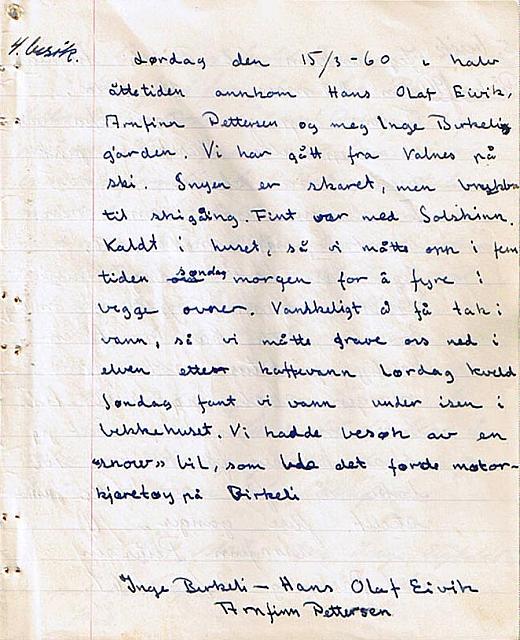 4. besøk.
Lørdag den 15/3-60 i halv
åttetiden annkom Hans Olaf Eivik,
Arnfinn Pettersen og meg Inge Birkeli
gården. Vi har gått fra Valnes på
ski. Snyen er skaret, men
til skigåing. Fint vær med Solskinn.
Kaldt i huset, så vi måtte opp i fem
tiden søndag morgen for å fyre i
vegge ovner. Vanskeligt å få tak i
vann, så vi måtte grave oss ned i
elven etter kaffevann Lørdag kveld
Søndag fant vi vann under isen i
bekkehuset. Vi hadde besøk av en
"snow" bil, som ble det første motor-
kjøretøy på Birkeli
Inge Birkeli - Hans Olaf Eivik
Arnfinn Pettersen